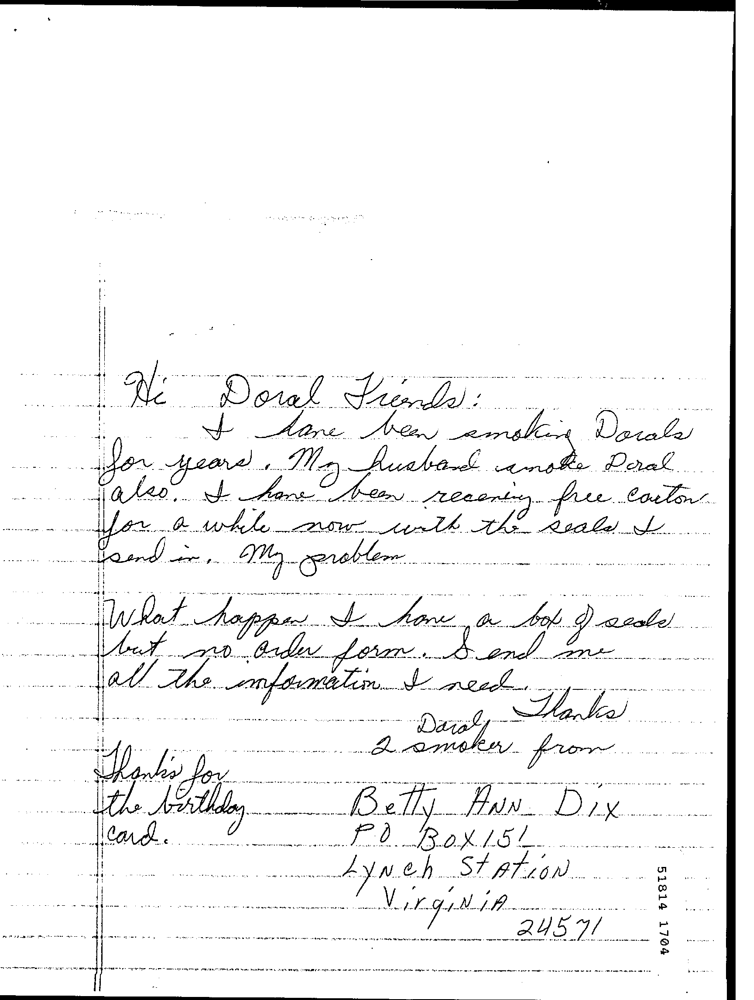 Hi Doral Friends:
I have been smoking Dorals
for years. My husband smoke Doral
also. I have been receving free carton
for a while now with the seals I
send in. My problem
What happen I have a box of seals
but no order form. Send me
all the information I need.
Thanks
Doral
2 smoker from
Thanks for
the birthday
card.
Betty Ann Dix
PO Box 151
Lynch Station
Virginia
24571
51814 1704